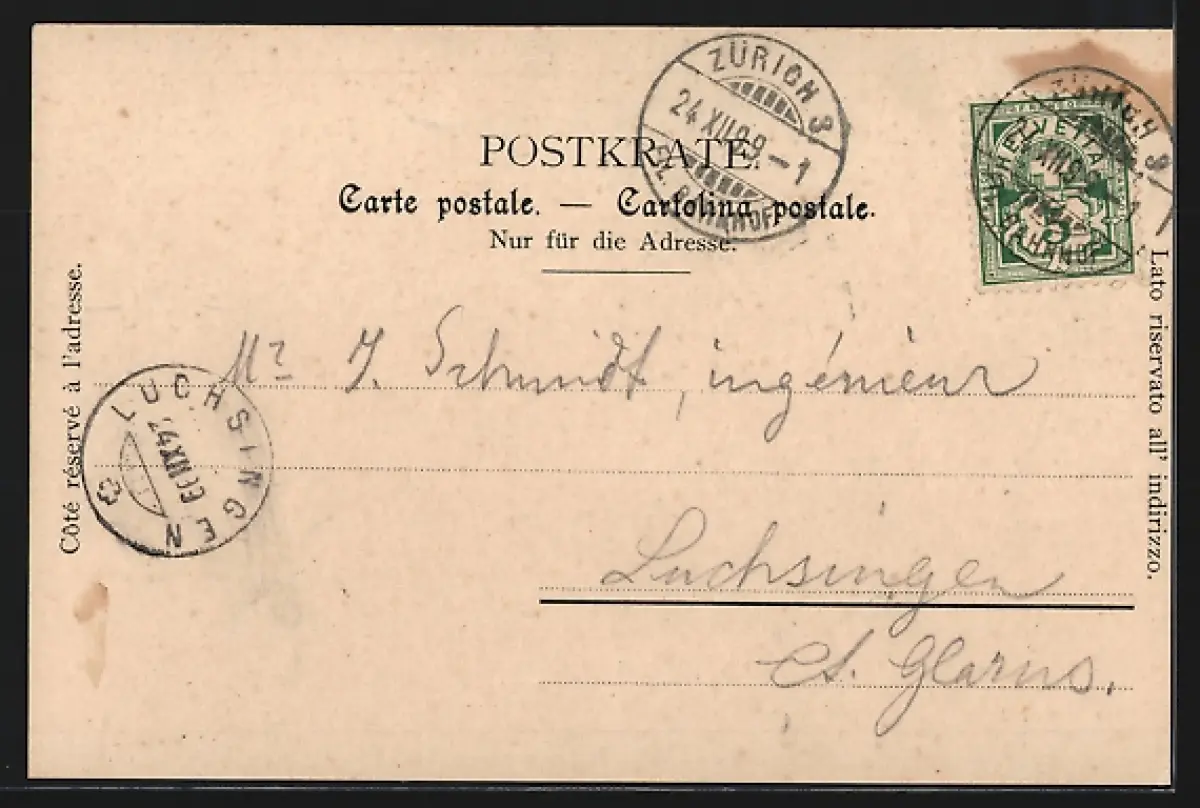 POSTKRATE.
Carte postale. — Cartolina postale.
Nur für die Adresse.
Côté réservé à l'adresse.
Lato riservato all' indirizzo.
ZÜRICH 3
24.XII.99.-1
BAHNHOF
HELVETIA
5
BAHNHOF
LUCHSINGEN
24.XII.99
Mr J. Schmidt, ingénieur
Luchsingen
Ct. Glarus.